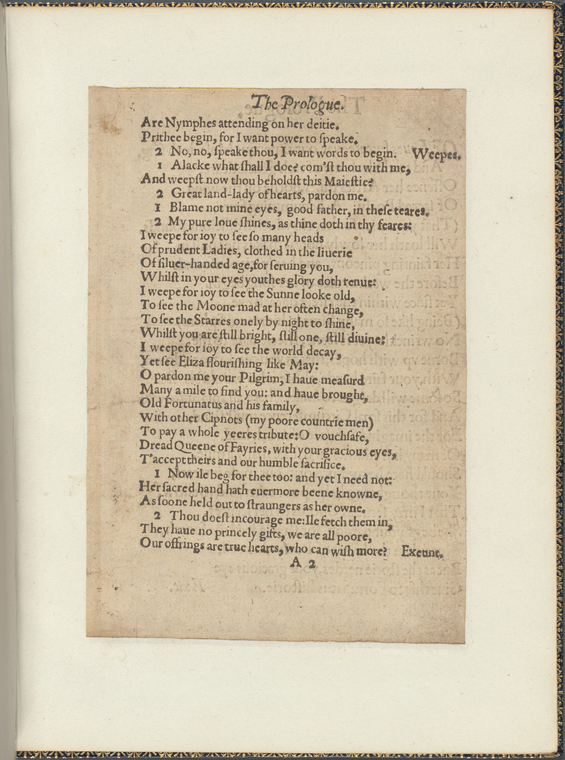 The Prologue.
Are Nymphes attending on her deitie.
Prithee begin, for I want power to speake.
2 No, no, speake thou, I want words to begin. Weepes.
1 Alacke what shall I doe? com'st thou with me,
And weepst now thou beholdst this Maiestie?
2 Great land-lady of hearts, pardon me.
1 Blame not mine eyes, good father, in these teares.
2 My pure loue shines, as thine doth in thy feares:
I weepe for ioy to see so many heads
Of prudent Ladies, clothed in the liuerie
Of siluer-handed age, for seruing you,
Whilst in your eyes youthes glory doth renue:
I weepe for ioy to see the Sunne looke old,
To see the Moone mad at her often change,
To see the Starres onely by night to shine,
Whilst you are still bright, still one, still diuine:
I weepe for ioy to see the world decay,
Yet see Eliza flourishing like May:
O pardon me your Pilgrim, I haue measurd
Many a mile to find you: and haue brought,
Old Fortunatus and his family,
With other Cipriots (my poore countrie men)
To pay a whole yeeres tribute: O vouchsafe,
Dread Queene of Fayries, with your gracious eyes,
T'accept theirs and our humble sacrifice.
1 Now ile beg for thee too: and yet I need not:
Her sacred hand hath euermore beene knowne,
As soone held out to straungers as her owne.
2 Thou doest incourage me: Ile fetch them in,
They haue no princely gifts, we are all poore,
Our offrings are true hearts, who can wish more? Exeunt.
A 2